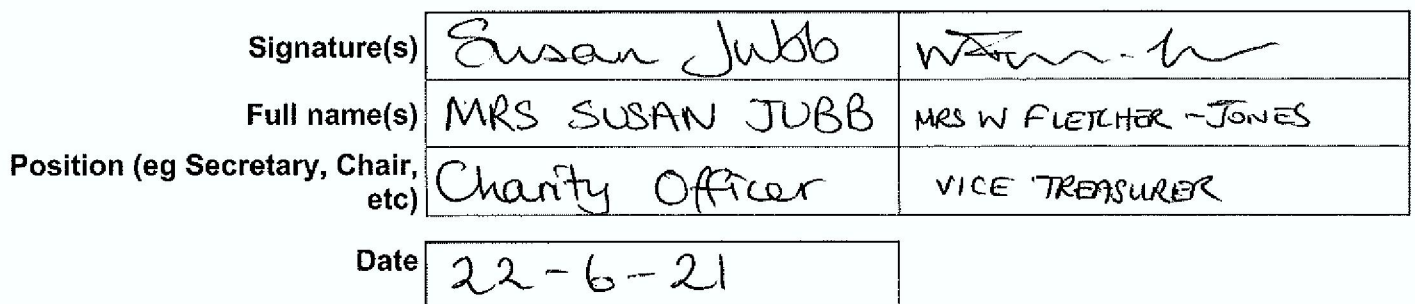 Signature(s) Susan Jubb
Full name(s) MRS SUSAN JUBB MRS W FLETCHER-JONES
Position (eg Secretary, Chair, etc) Charity Officer VICE TREASURER
Date 22-6-21